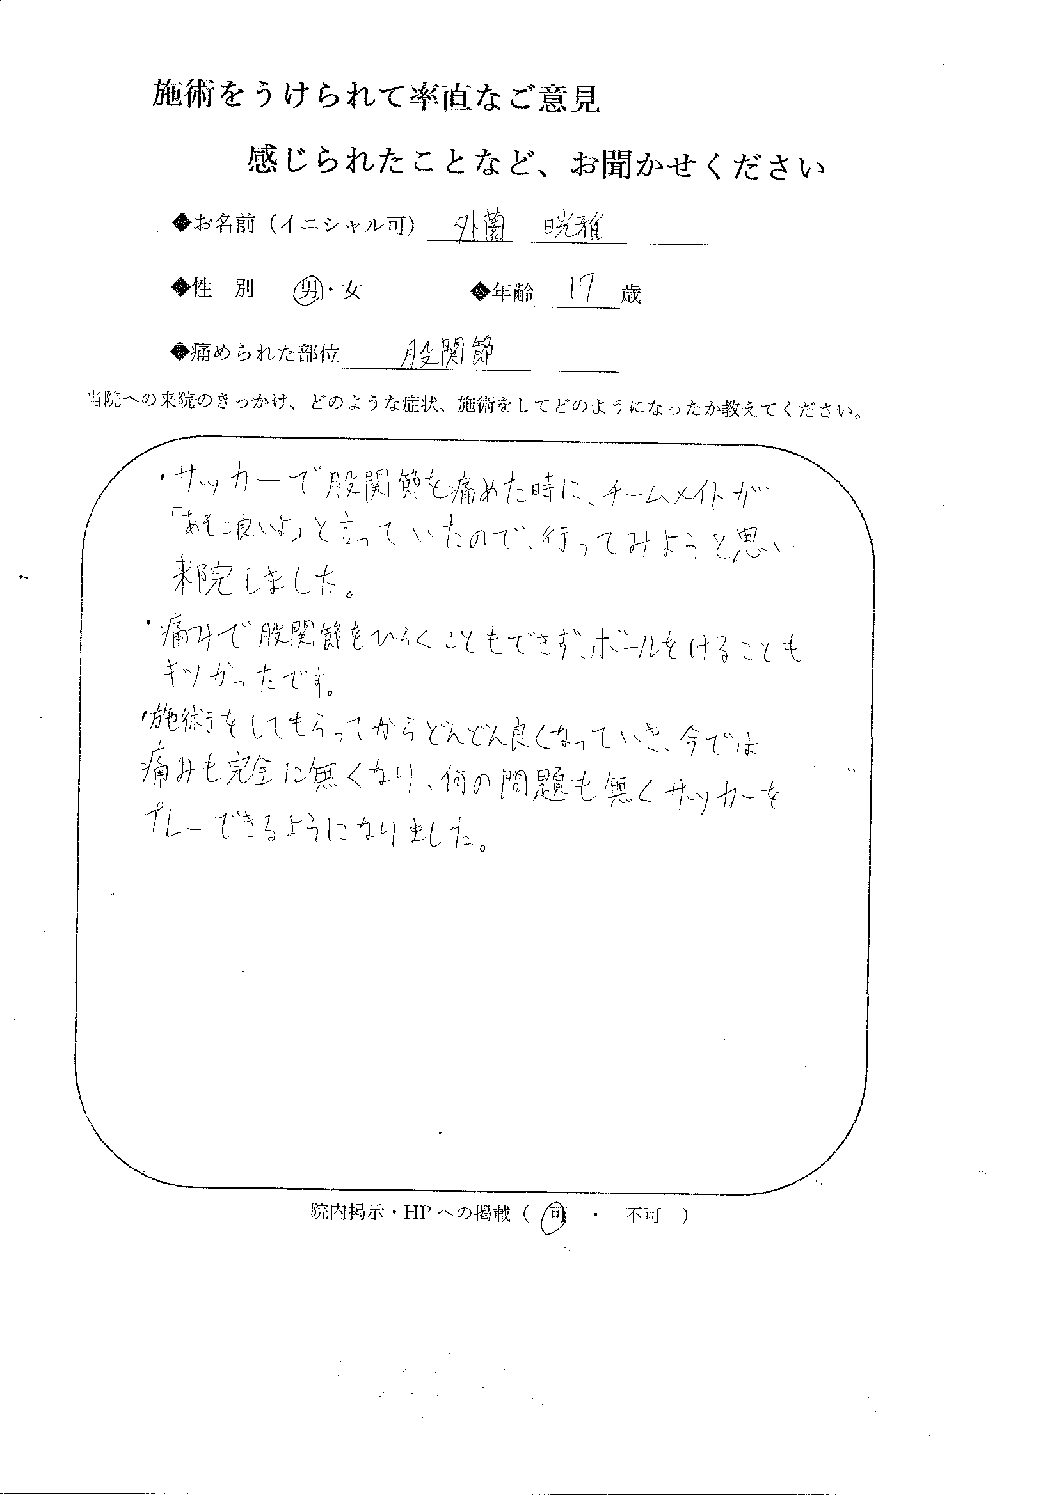 施術をうけられて率直なご意見
感じられたことなど、お聞かせください
◆お名前（イニシャル可） 外薗 晄雅
◆性 別 男・女 ◆年齢 17 歳
◆痛められた部位 股関節
当院への来院のきっかけ、どのような症状、施術をしてどのようになったか教えてください。
・サッカーで股関節を痛めた時に、チームメイトが
「あそこ良いよ」と言っていたので、行ってみようと思い
来院しました。
・痛みで股関節をひらくこともできず、ボールをけることも
キツかったです。
・施術をしてもらってからどんどん良くなっていき、今では
痛みも完全に無くなり、何の問題も無くサッカーを
プレーできるようになりました。
院内掲示・HPへの掲載（ 可 ・ 不可 ）